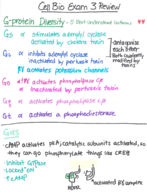 Cell Bio Exam 3 Review
G-protein Diversity - 5 Best Understood Isotypes **
Gs α stimulates adenylyl cyclase
activated by cholera toxin
Gi α inhibits adenylyl cyclase
inactivated by pertussis toxin
βγ activates potassium channels
antagonize each other
Both covalently modified by toxins
Go α+βγ activates phospholipase Cβ
α inactivated by pertussis toxin
Gq α activates phospholipase Cβ
Gt α activates phosphodiesterase
cAMP activates PKA, catalytic subunits activated, so
they can phosphorylate things like CREB
- inhibit GTPase
- Locked "on"